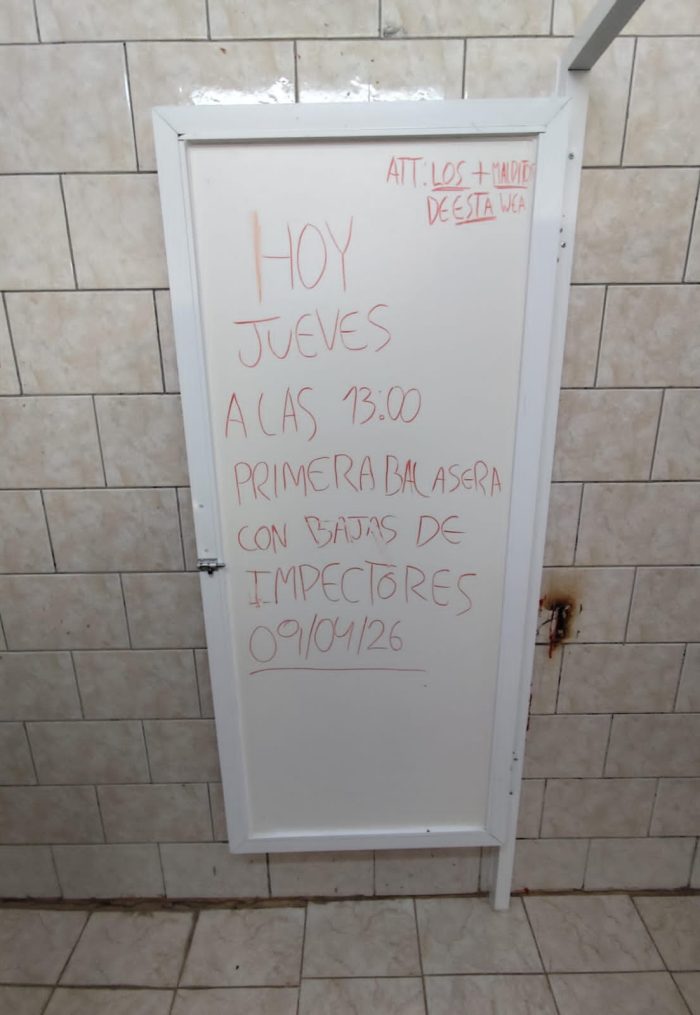 ATT: LOS + MALDITOS
DE ESTA WEA
HOY
JUEVES
A LAS 13:00
PRIMERA BALASERA
CON BAJAS DE
IMPECTORES
09/04/26